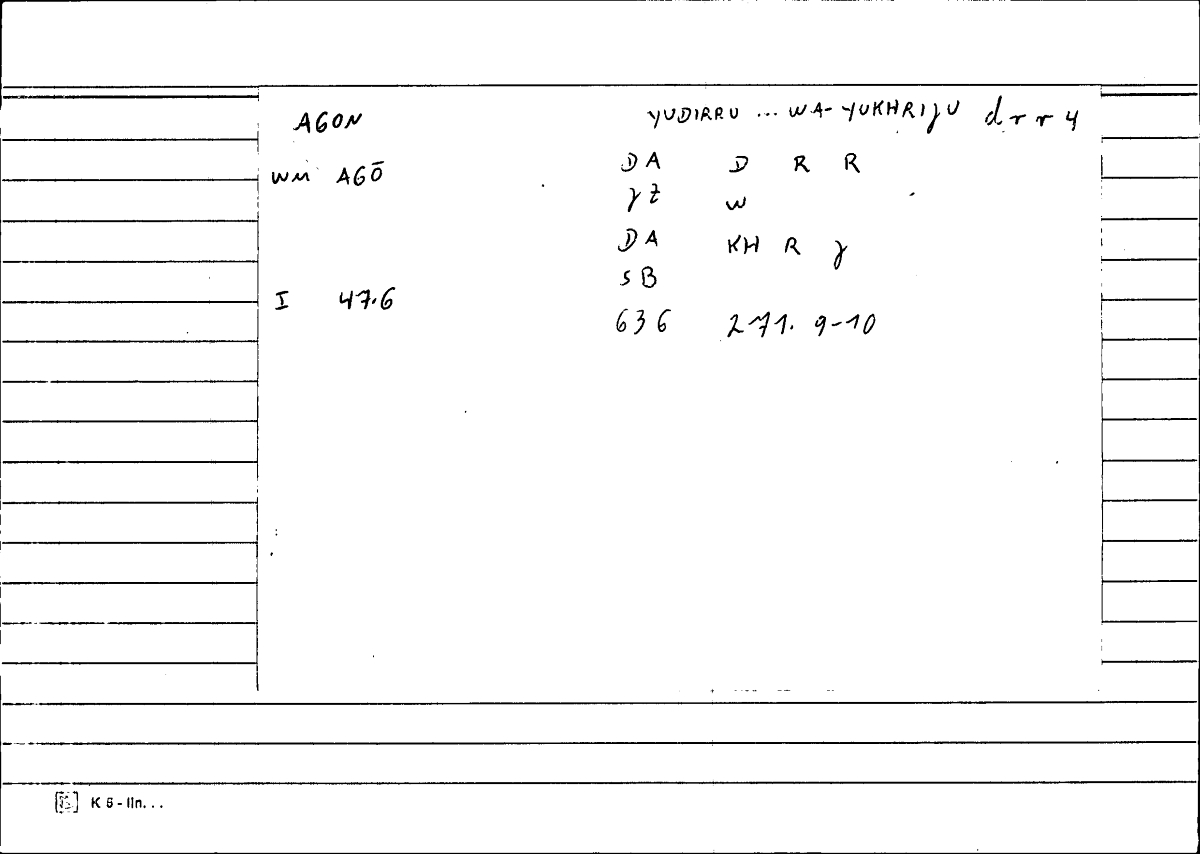 AGON YUDIRRU ... WA-YUKHRIJU drr 4
WM AGŌ DA D R R
JZ W
DA KH R J
SB
I 47.6 636 271. 9-10
K 6 - lln. . .